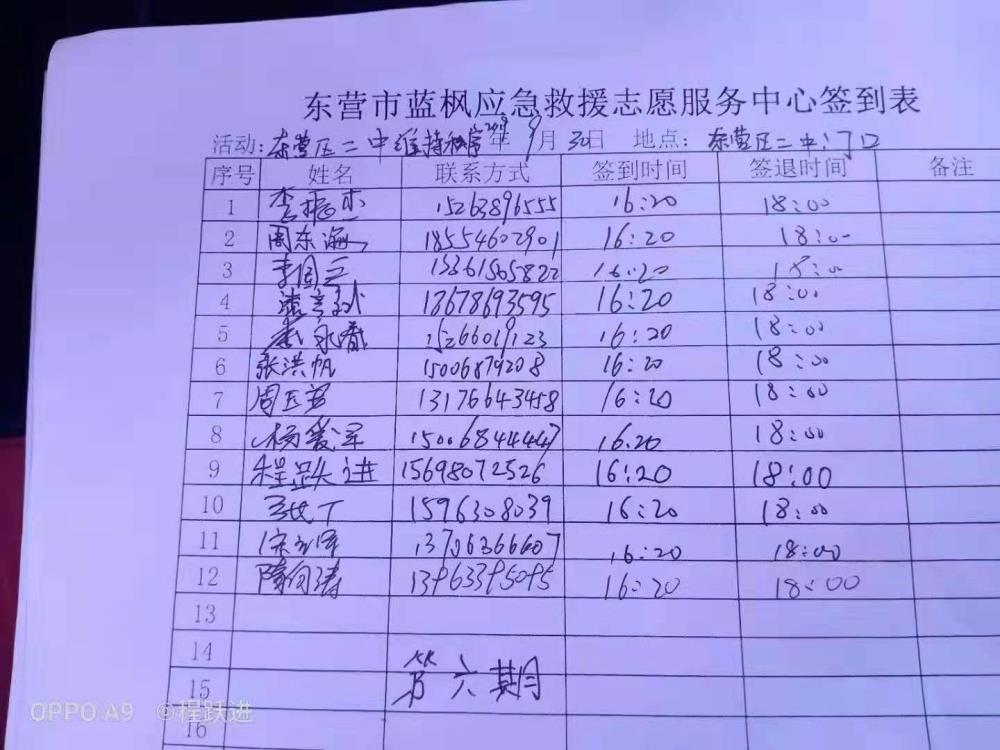 东营市蓝枫应急救援志愿服务中心签到表
活动：东营区二中维持秩序 年9月30日 地点：东营区二中门口
序号 姓名 联系方式 签到时间 签退时间 备注
1 李振杰 15263896555 16:20 18:00
2 周东海 18554602901 16:20 18:00
3 李国 16:20 18:00
4 18678693595 16:20 18:00
5 永春 15266019123 16:20 18:00
6 张洪帆 15006879208 16:20 18:00
7 周玉 13176643458 16:20 18:00
8 杨爱军 15006844447 16:20 18:00
9 程跃进 15698072526 16:20 18:00
10 1596308039 16:20 18:00
11 13706366607 16:20 18:00
12 隋向涛 13963395095 16:20 18:00
13
14
15 第六期
16
OPPO A9 @程跃进